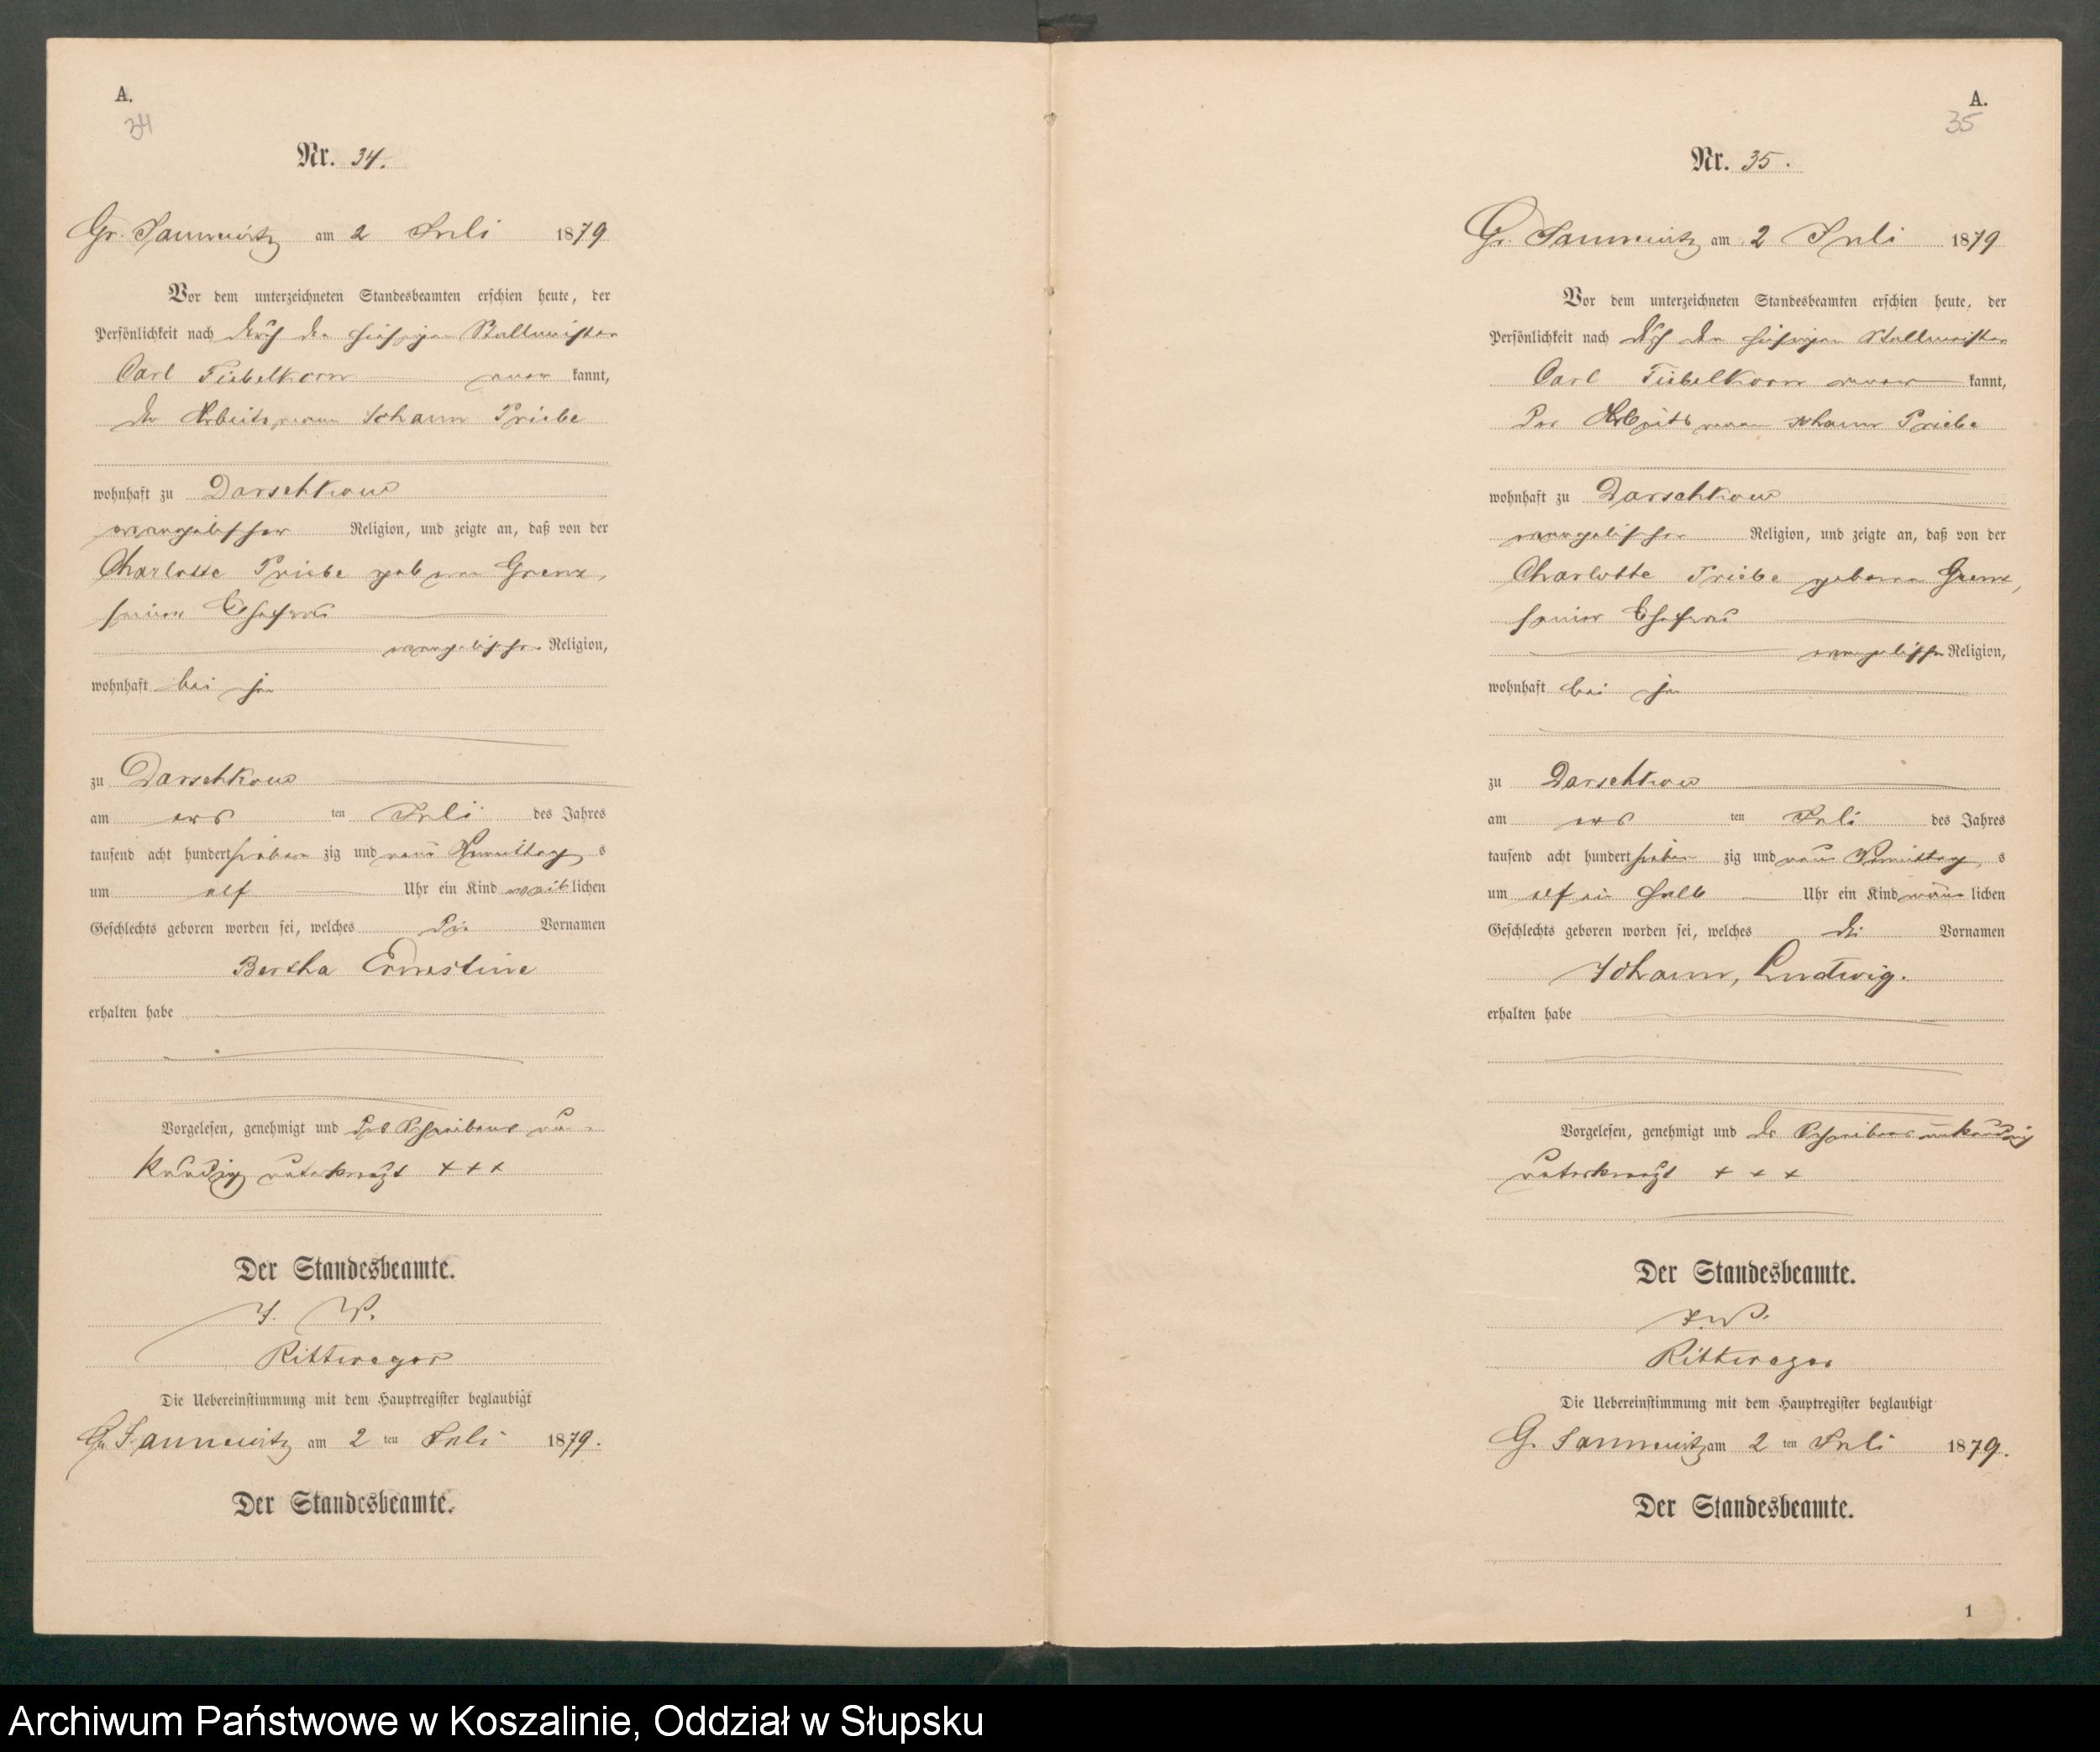 A.
34
Nr. 34.
Gr. Jannewitz am 2 Juli 1879
Vor dem unterzeichneten Standesbeamten erschien heute, der
Persönlichkeit nach durch den hiesigen Stallmeister
Carl Fiebelkorn aner kannt,
der Arbeitsmann Johann Priebe
wohnhaft zu Darschkow
evangelischer Religion, und zeigte an, daß von der
Charlotte Priebe geborne Grenz,
seiner Ehefrau
evangelischer Religion,
wohnhaft bei ihm
zu Darschkow
am ers ten Juli des Jahres
tausend acht hundert sieben zig und neun Vormittag s
um elf Uhr ein Kind weib lichen
Geschlechts geboren worden sei, welches die Vornamen
Bertha Ernestine
erhalten habe
Vorgelesen, genehmigt und des Schreibens un-
kundig unterkreuzt +++
Der Standesbeamte.
J. V.
Rittweger
Die Uebereinstimmung mit dem Hauptregister beglaubigt
Gr. Jannewitz am 2 ten Juli 1879.
Der Standesbeamte.
A.
35
Nr. 35.
Gr. Jannewitz am 2 Juli 1879
Vor dem unterzeichneten Standesbeamten erschien heute, der
Persönlichkeit nach durch den hiesigen Stallmeister
Carl Fiebelkorn aner kannt,
der Arbeitsmann Johann Priebe
wohnhaft zu Darschkow
evangelischer Religion, und zeigte an, daß von der
Charlotte Priebe geborne Grenz,
seiner Ehefrau
evangelischer Religion,
wohnhaft bei ihm
zu Darschkow
am ers ten Juli des Jahres
tausend acht hundert sieben zig und neun Vormittag s
um elf ein halb Uhr ein Kind männ lichen
Geschlechts geboren worden sei, welches die Vornamen
Johann, Ludwig.
erhalten habe
Vorgelesen, genehmigt und des Schreibens unkundig
unterkreuzt + + +
Der Standesbeamte.
J. V.
Rittweger
Die Uebereinstimmung mit dem Hauptregister beglaubigt
Gr. Jannewitz am 2 ten Juli 1879.
Der Standesbeamte.
1
Archiwum Państwowe w Koszalinie, Oddział w Słupsku